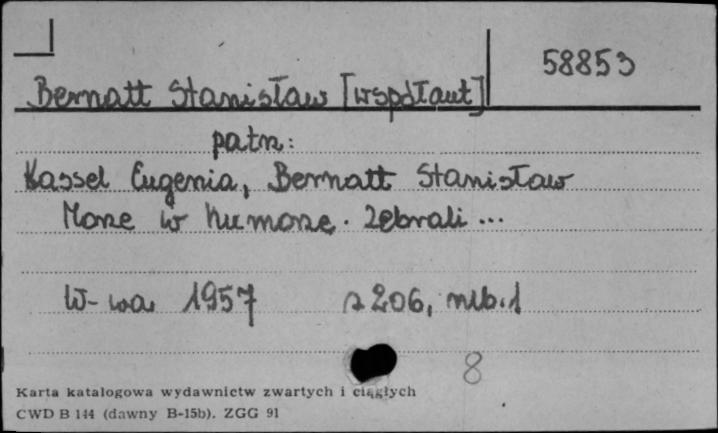 58853
Bernatt Stanisław [współaut]
patrz:
Kassel Eugenia, Bernatt Stanisław
Morze w humorze. Zebrali ...
W-wa 1957 s 206, nlb. 1
8
Karta katalogowa wydawnictw zwartych i ciągłych
CWD B 144 (dawny B-15b). ZGG 91